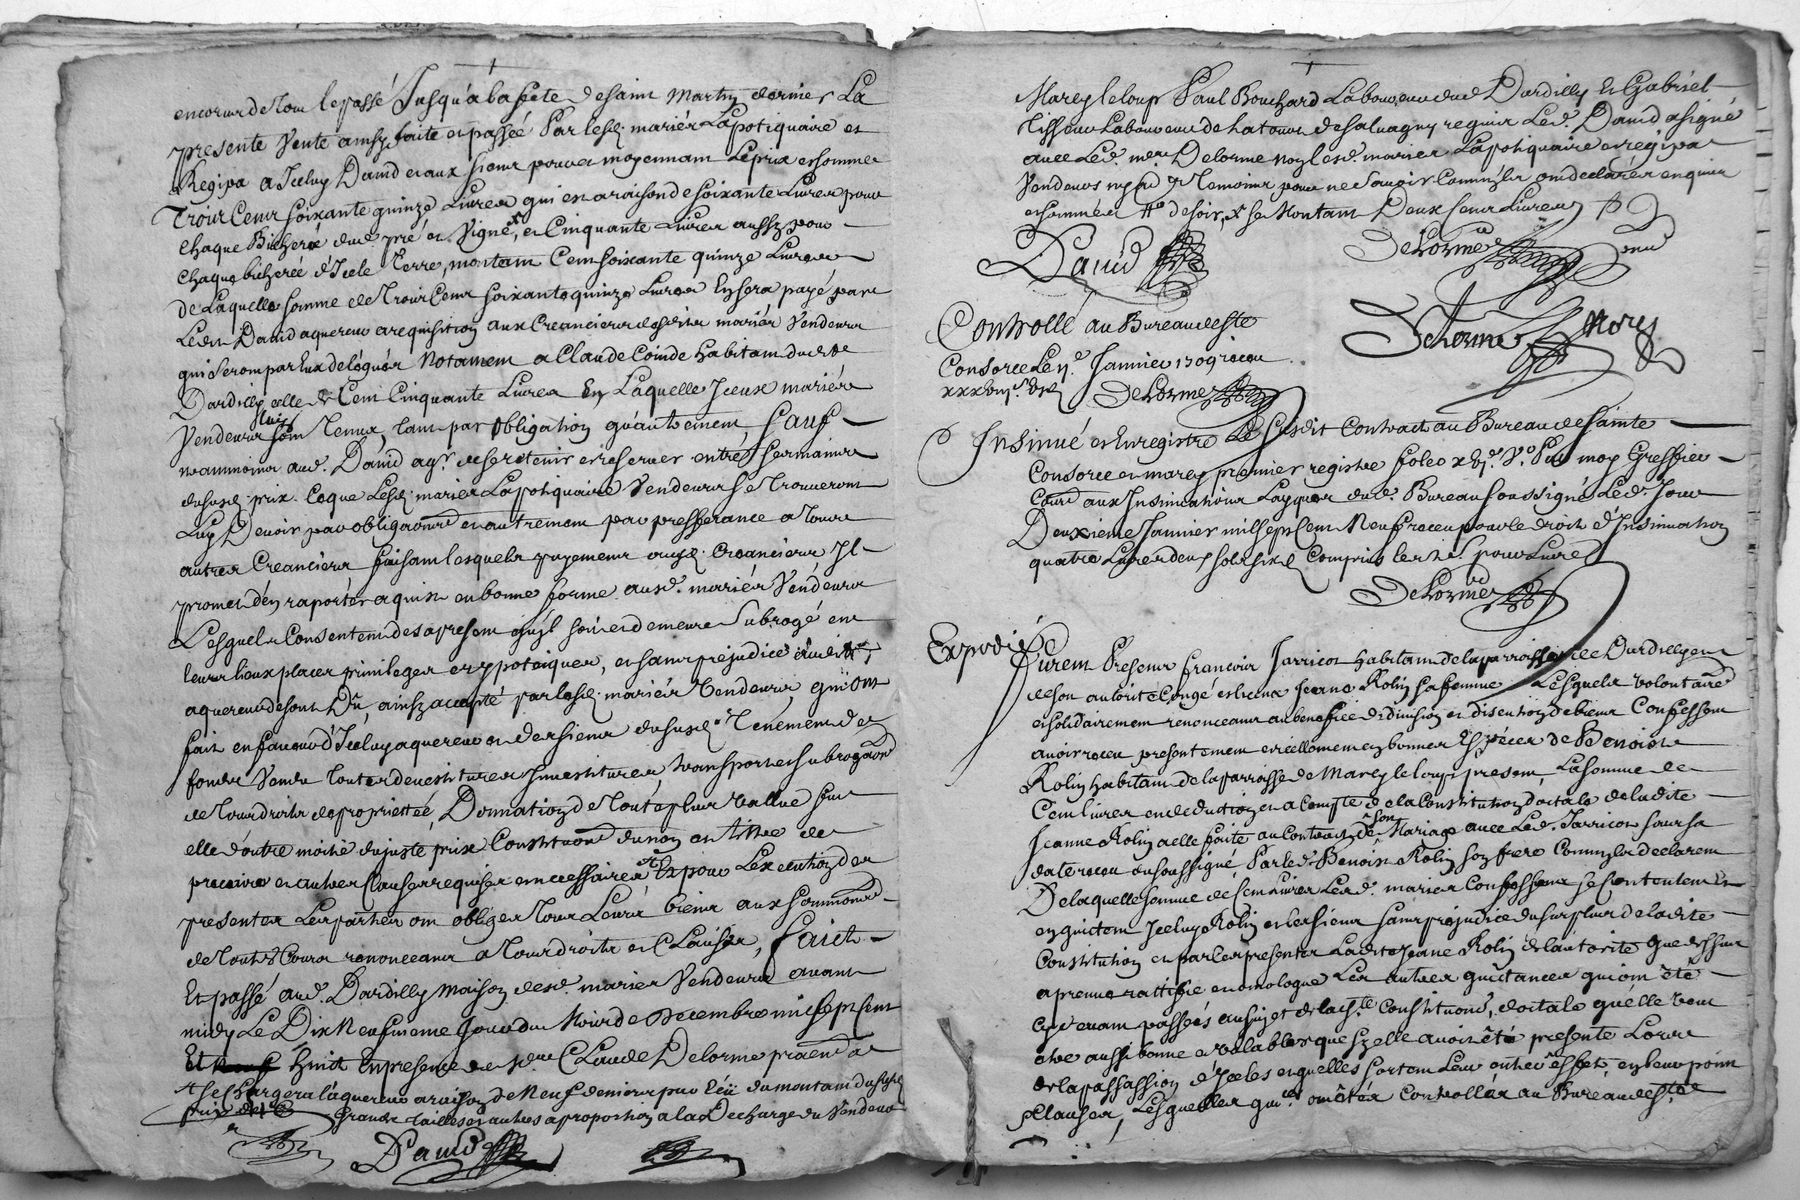 encour de tout le passé Jusqu'a la feste de saint Martin dernier La
presente Vente ainsy faite et passée Par lesd. mariés Lapotiquaire et
Regipa a Iceluy David et aux siens pour et moyennant Le prix et somme
Trois Cens soixante quinze Livres qui est a raison de soixante Livres pour
Chaque Bicherée dud. pré et Vigne, et Cinquante Livres aussy pour
Chaque bicherée d'Icele Terre, montant Cent soixante quinze Livres
de Laquelle somme de Trois Cens soixante quinze Livres En sera payé par
Led. David aquereur a requisition aux Creanciers desdits mariés Vendeurs
qui seront par Eux delegués Notament a Claude Coinde habitant dud.
Dardilly celle de Cent Cinquante Livres En Laquelle Iceux mariés
Vendeurs luy sont Tenus, tant par obligation qu'autrement, Sauf
neanmoins aud. David aqr. de se retenir et reserver entre ses mains
dususd. prix Ce que Lesd. mariés Lapotiquaire Vendeurs se Trouveront
Luy Devoir par obligation et autrement par presferance a tous
autres Creanciers faisant lesquels payements ausd. Creanciers Il
promet d'en raporter aquist en bonne forme ausd. mariés Vendeurs
Lesquels Consentent des apresent qu'il soit et demeure Subrogé en
leurs lieux places privileges et ypoteques, et sans prejudice
aquereur de son Dû, ainsy accepté par lesd. mariés Vendeurs, qui ont
fait en faveur d'Iceluy aquereur et des siens dususd. Tenement de
fonds Vendu Toutes devestitures Investitures, transports subrogaõns
de tous droits de proprietté, Donnation de toute plus vallue fut
elle d'outre moitié du juste prix Constitution du nom et tiltre de
precaire et autres Clauses requises et necessaires Et pour L'execution des
presentes Les parties ont obligé tous Leurs biens aux soumissions
de toutes Cours renonceant a tous droits et Clauses, Faict
Et passé aud. Dardilly maison desd. mariés Vendeurs avant
midy Le Dix Neufvieme Jour du Mois de Decembre mil sept Cent
Et huit En presence de Claude Delorme praticien de
se Chargera l'aquereur a raison de Neuf deniers par du montant dususd.
prix grande taille et autres a proportion a la Decharge du Vendeur
David
Marcy le loup Paul Bouchard Laboureur dud. Dardilly Et Gabriel
Tisseur Laboureur de La tour de Salvagny requis Led. David a signé
avec Led. Delorme non lesd. mariés Lapotiquaire et regipa
Vendeurs ny led. Temoins pour ne Scavoir Comm'ils ont declaré en quis
et sommés de soir, se Montant Deux Cens Livres
David
Delorme
Delorme
Controllé au Bureau de Ste
Consorce Le 2e. Janvier 1709 receu
Delorme
Insinué et Enregistré Le susdit Contract au Bureau de Sainte
Consorce et Marcy premier registre folio par moy Greffier
Com̃. aux Insinuations Layques dud. Bureau soussigné Led. Jour
Deuxieme Janvier mil sept Cent Neuf receu pour le droit d'Insinuation
quatre Livres deux sols six d. Compris les 2s. pour Livre
Delorme
Expedié
Furent Presens francois Jarricot habitant de la parroisse de Dardilly et
de son autorité Congé et licence Jeanne Rolin sa femme Lesquels volontaire
et solidairement renonceans au benefice de division et discution de biens Confessent
avoir receu presentement et reellement en bonnes Especes de Benoist
Rolin habitant de la parroisse de Marcy le loup present La somme de
Cent livres en deduction et a Compte de la Constitution dotale de ladite
Jeanne Rolin a elle faite au Contract de son Mariage avec Led. Jarricot sous sa
date receu du soussigné Par led. Benoist Rolin son frere Comm'ils declarent
De laquelle somme de Cent Livres Lesd. mariés Confessans se Contentent Et
en quittent Iceluy Rolin et les siens sans prejudice du surplus de ladite
Constitution et par les presentes Ladite Jeanne Rolin de l'autorité que dessus
aprouve rattifie et omologue Les autres quittances qui ont été
cy devant passées au sujet de lad. Constitution, dotale qu'elle veut
etre aussi bonnes et valables que si elle avoit été presente Lors
de la passassion d'Iceles et quelles sortent Leur entier effet, en leurs points
et clauses, Lesquelles quitces. ont été Controllées au Bureau de Ste